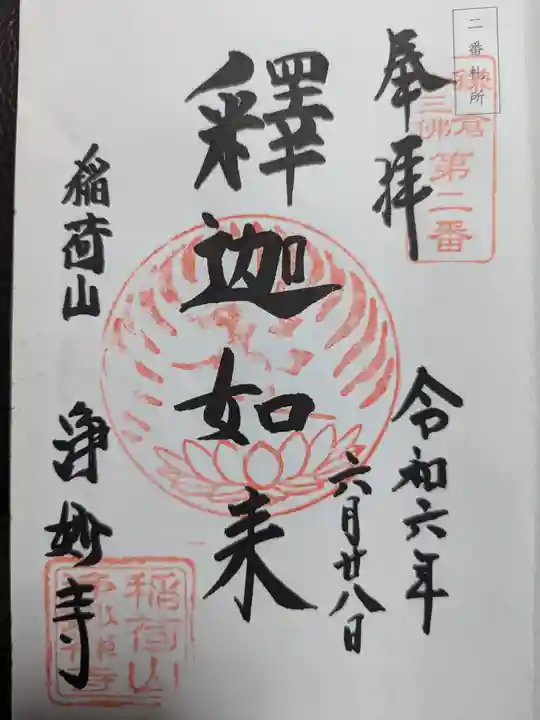 二番札所
奉拝
鎌倉
三佛
第二番
令和六年
六月廿八日
釋迦如来
稲荷山 浄妙寺
稲荷山